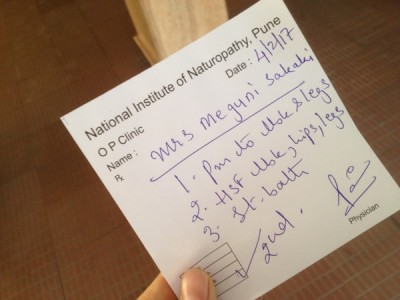 National Institute of Naturopathy, Pune
O P Clinic
Date : 4/2/17
Name : Mrs Megumi Sakaki
Rx
1. Pm to & legs
2. HSF hips, legs
3. St. bath
2nd.
Physician